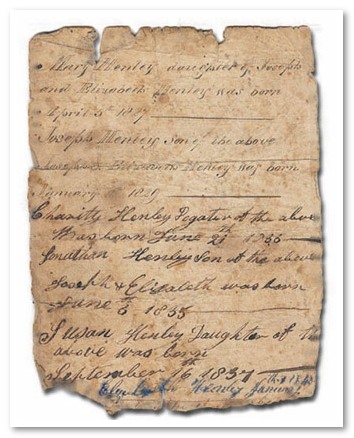 Mary Henley daughter of Joseph
and Elizabeth Henley was born
April 5th
Joseph Henley Son of the above
Joseph Elizabeth Henley was born
January 1829
Charity Henley of the above
Was born June 1833
Jonathan Henley Son of the above
Joseph & Elizabeth was born
June 1835
Susan Henley Daughter of th
above was born
September 16th 1837
Henley